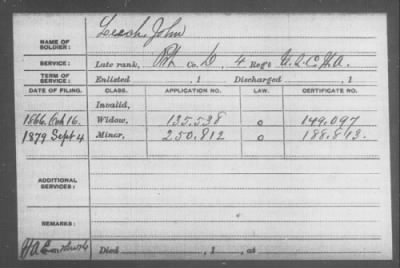 NAME OF SOLDIER: Leach, John
SERVICE: Late rank, Pvt Co. D, 4 Reg't U.S.C.H.A.
TERM OF SERVICE: Enlisted , 1 Discharged , 1
DATE OF FILING. CLASS. APPLICATION NO. LAW. CERTIFICATE NO.
Invalid,
1866, Oct 16. Widow, 135.538 o 149.097
1879 Sept 4 Minor, 250.812 o 188.893.
ADDITIONAL SERVICES:
REMARKS:
Died , 1 , at